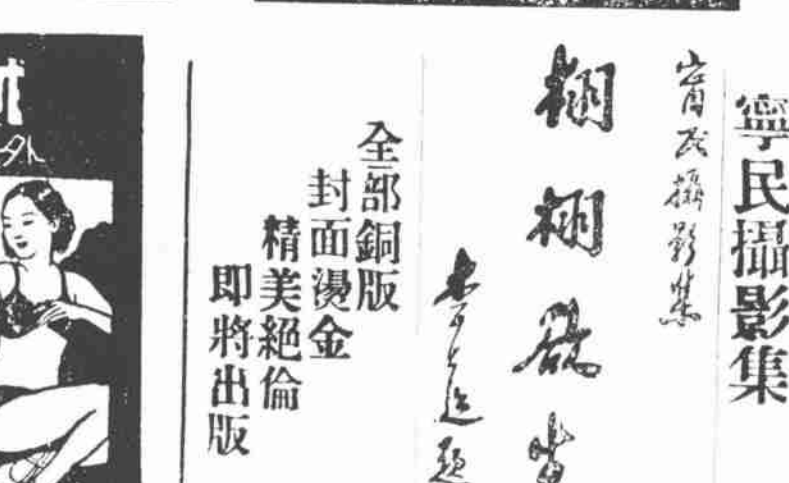 寧民攝影集
甯民攝影集
栩栩欲
題
全部銅版
封面燙金
精美絕倫
即將出版
外